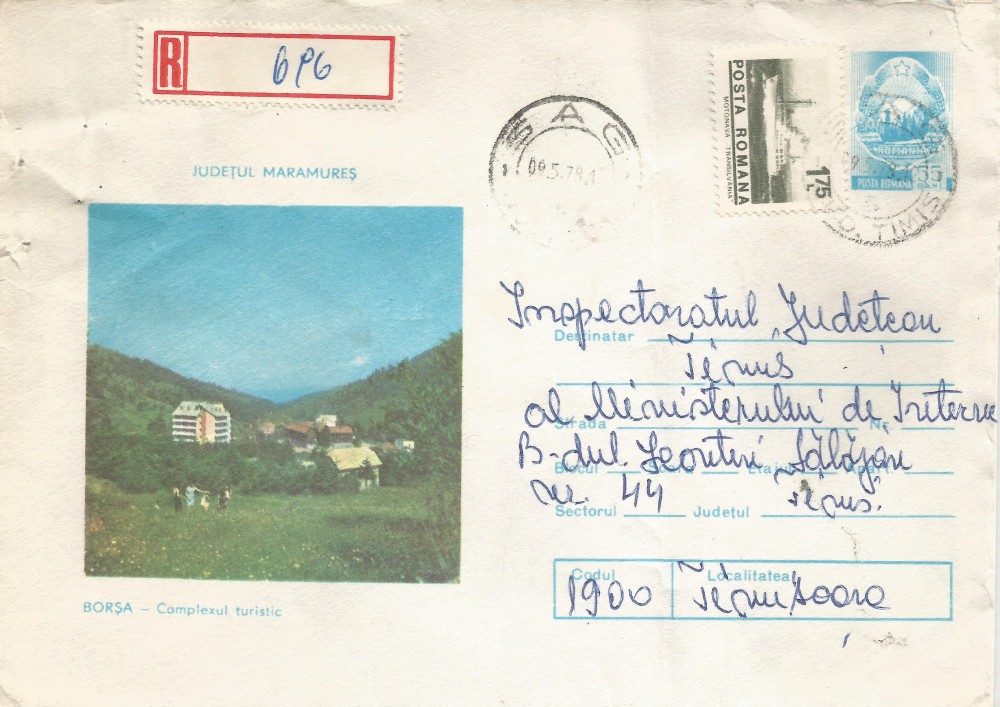 R 696
JUDEȚUL MARAMUREȘ
BORȘA – Complexul turistic
ȘAG
09.5.79
POSTA ROMANA
MOTONAVA "TRANSILVANIA"
1,75
ROMANIA
POSTA ROMANA
55
BANI
JUD. TIMIS
Inspectoratul Județean
Destinatar
Timiș
al Ministerului de Interne
Strada Nr.
B-dul. Leontin Sălăjan
Blocul Scara Etajul Apart.
nr. 44 Timiș.
Sectorul Județul
Codul Localitatea
1900 Timișoara